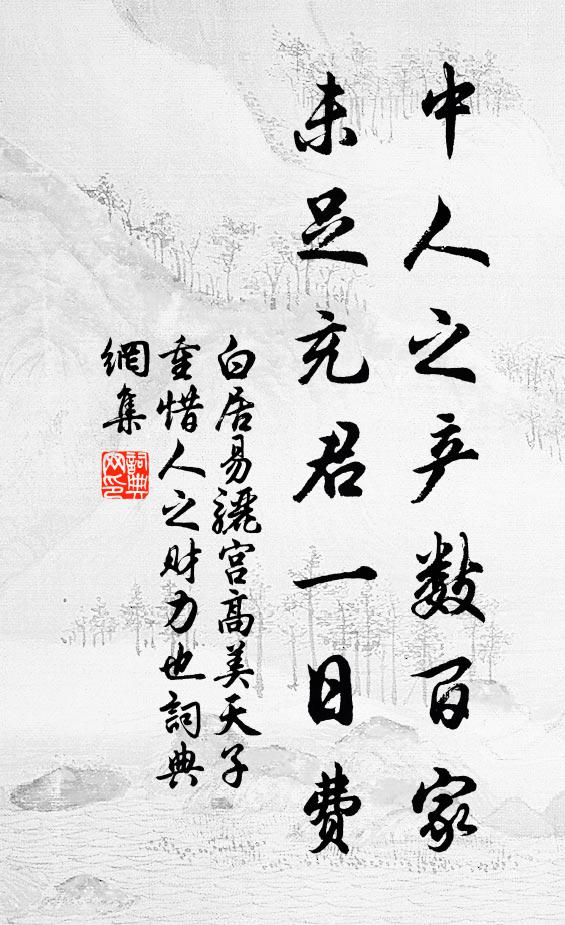 中人之产数百家
未足充君一日费
白居易骊宫高美天子
重惜人之财力也詞典
網集
詞典
网印